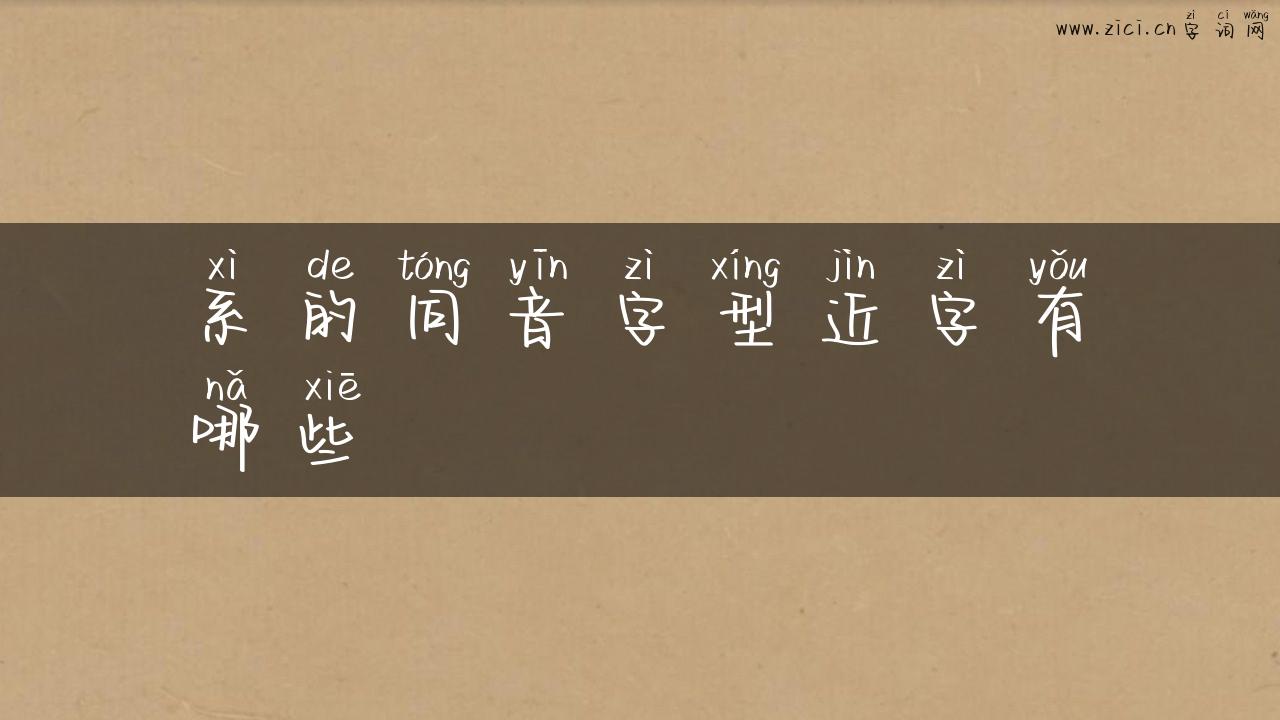 zì cí wǎng
www.zici.cn 字 词 网
xì de tóng yīn zì xíng jìn zì yǒu
系 的 同 音 字 型 近 字 有
nǎ xiē
哪 些